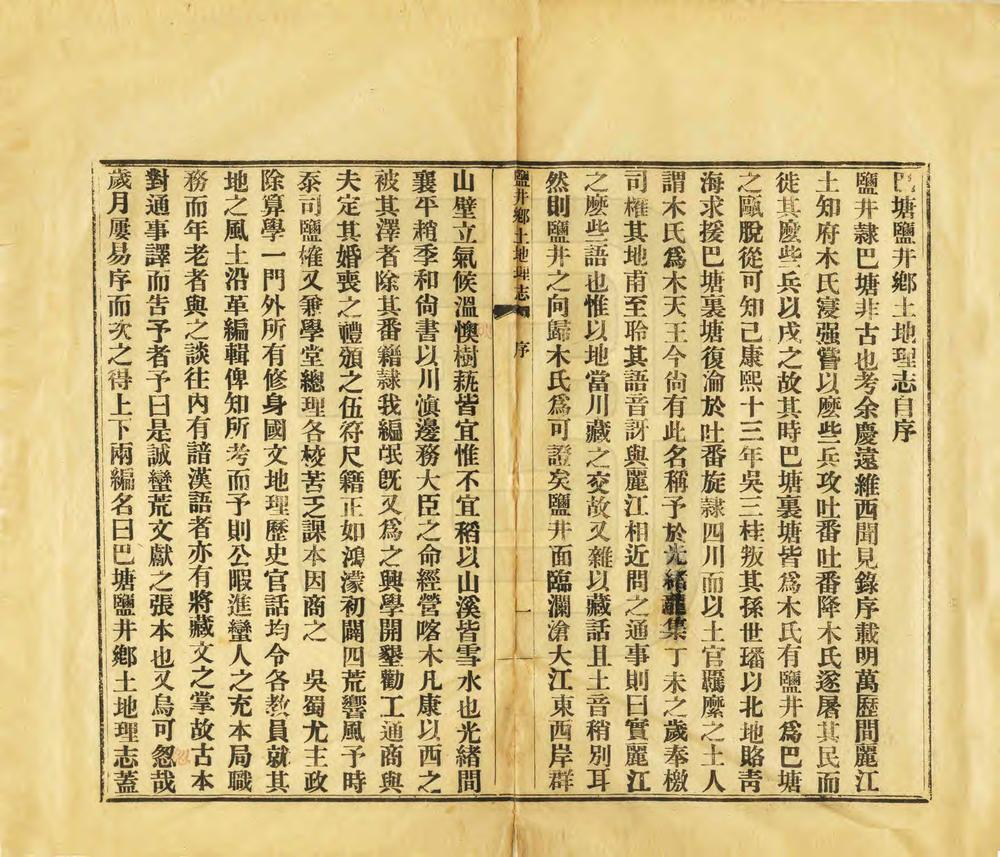 巴塘鹽井鄉土地理志自序
鹽井隷巴塘非古也考余慶遠維西聞見錄序載明萬歷間麗江
土知府木氏寖强嘗以麽些兵攻吐番吐番降木氏遂屠其民而
徙其麽些兵以戍之故其時巴塘裏塘皆爲木氏有鹽井爲巴塘
之甌脫從可知已康熙十三年吳三桂叛其孫世璠以北地賂靑
海求援巴塘裏塘復淪於吐番旋隷四川而以土官羈縻之土人
謂木氏爲木天王今尙有此名稱予於光緖龍集丁未之歲奉檄
司榷其地甫至聆其語音訝與麗江相近問之通事則曰實麗江
之麽些語也惟以地當川藏之交故又雜以藏話且土音稍別耳
然則鹽井之向歸木氏爲可證矣鹽井面臨瀾滄大江東西岸群
鹽井鄉土地理志 序 一
山壁立氣候溫懊樹蓺皆宜惟不宜稻以山溪皆雪水也光緖間
襄平趙季和尙書以川滇邊務大臣之命經營喀木凡康以西之
被其澤者除其番籍隷我編氓旣又爲之興學開墾勸工通商與
夫定其婚喪之禮頒之伍符尺籍正如鴻濛初闢四荒響風予時
忝司鹽榷又兼學堂總理各校苦乏課本因商之 吳蜀尤主政
除算學一門外所有修身國文地理歷史官話均令各敎員就其
地之風土沿革編輯俾知所考而予則公暇進蠻人之充本局職
務而年老者與之談往內有諳漢語者亦有將藏文之掌故古本
對通事譯而告予者予曰是誠蠻荒文獻之張本也又烏可忽哉
歲月屢易序而次之得上下兩編名曰巴塘鹽井鄉土地理志蓋